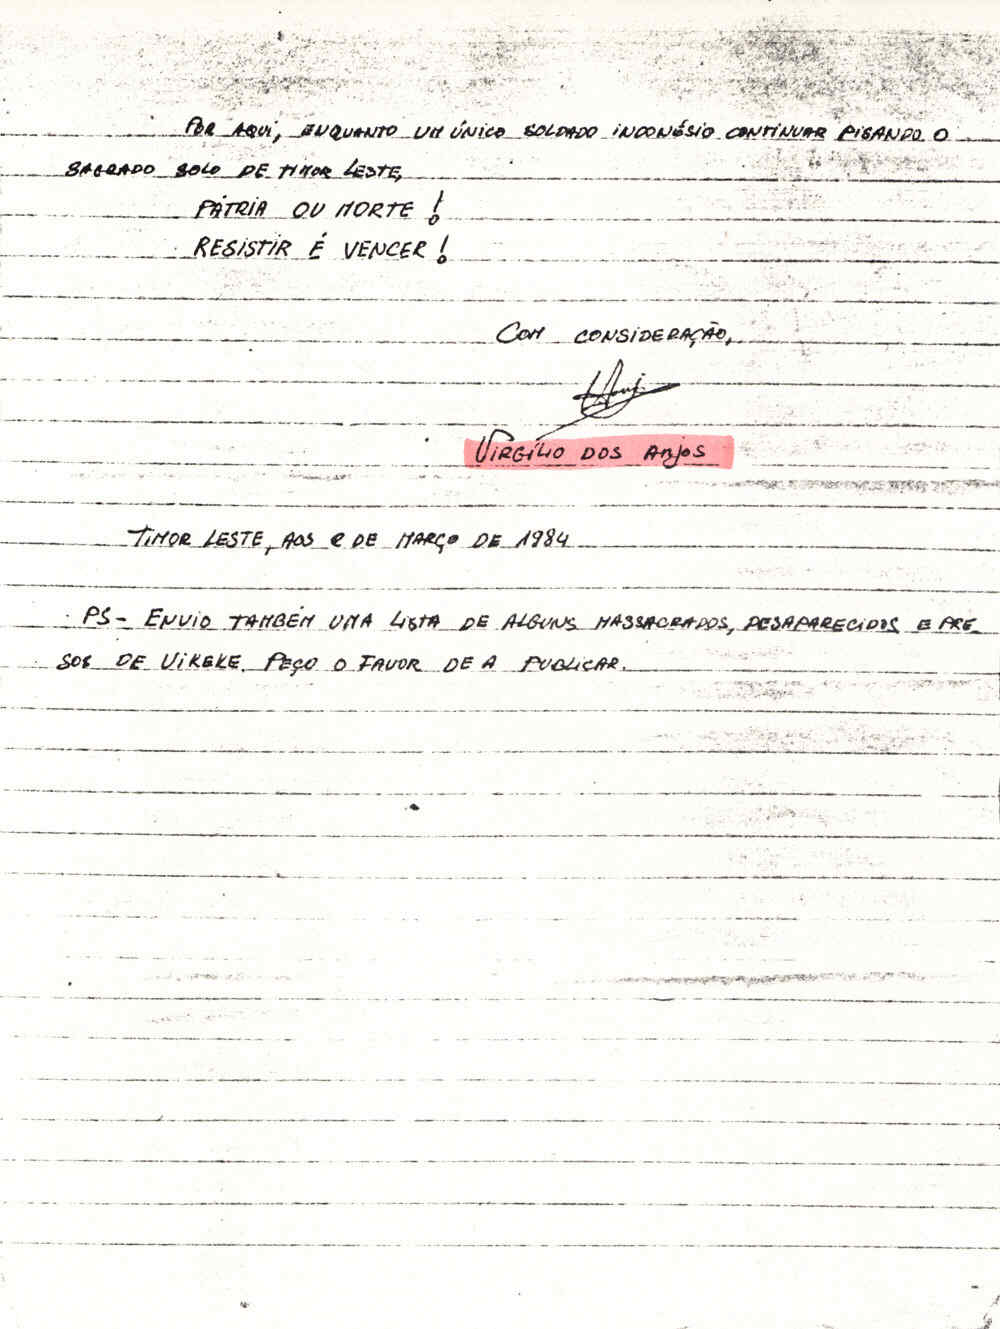 POR AQUI, ENQUANTO UM ÚNICO SOLDADO INDONÉSIO CONTINUAR PISANDO O
SAGRADO SOLO DE TIMOR LESTE,
PÁTRIA OU MORTE!
RESISTIR É VENCER!
COM CONSIDERAÇÃO,
VIRGÍLIO DOS ANJOS
TIMOR LESTE, AOS 2 DE MARÇO DE 1984
PS- ENVIO TAMBÉM UMA LISTA DE ALGUNS MASSACRADOS, DESAPARECIDOS E PRE-
SOS DE VIKEKE. PEÇO O FAVOR DE A PUBLICAR.